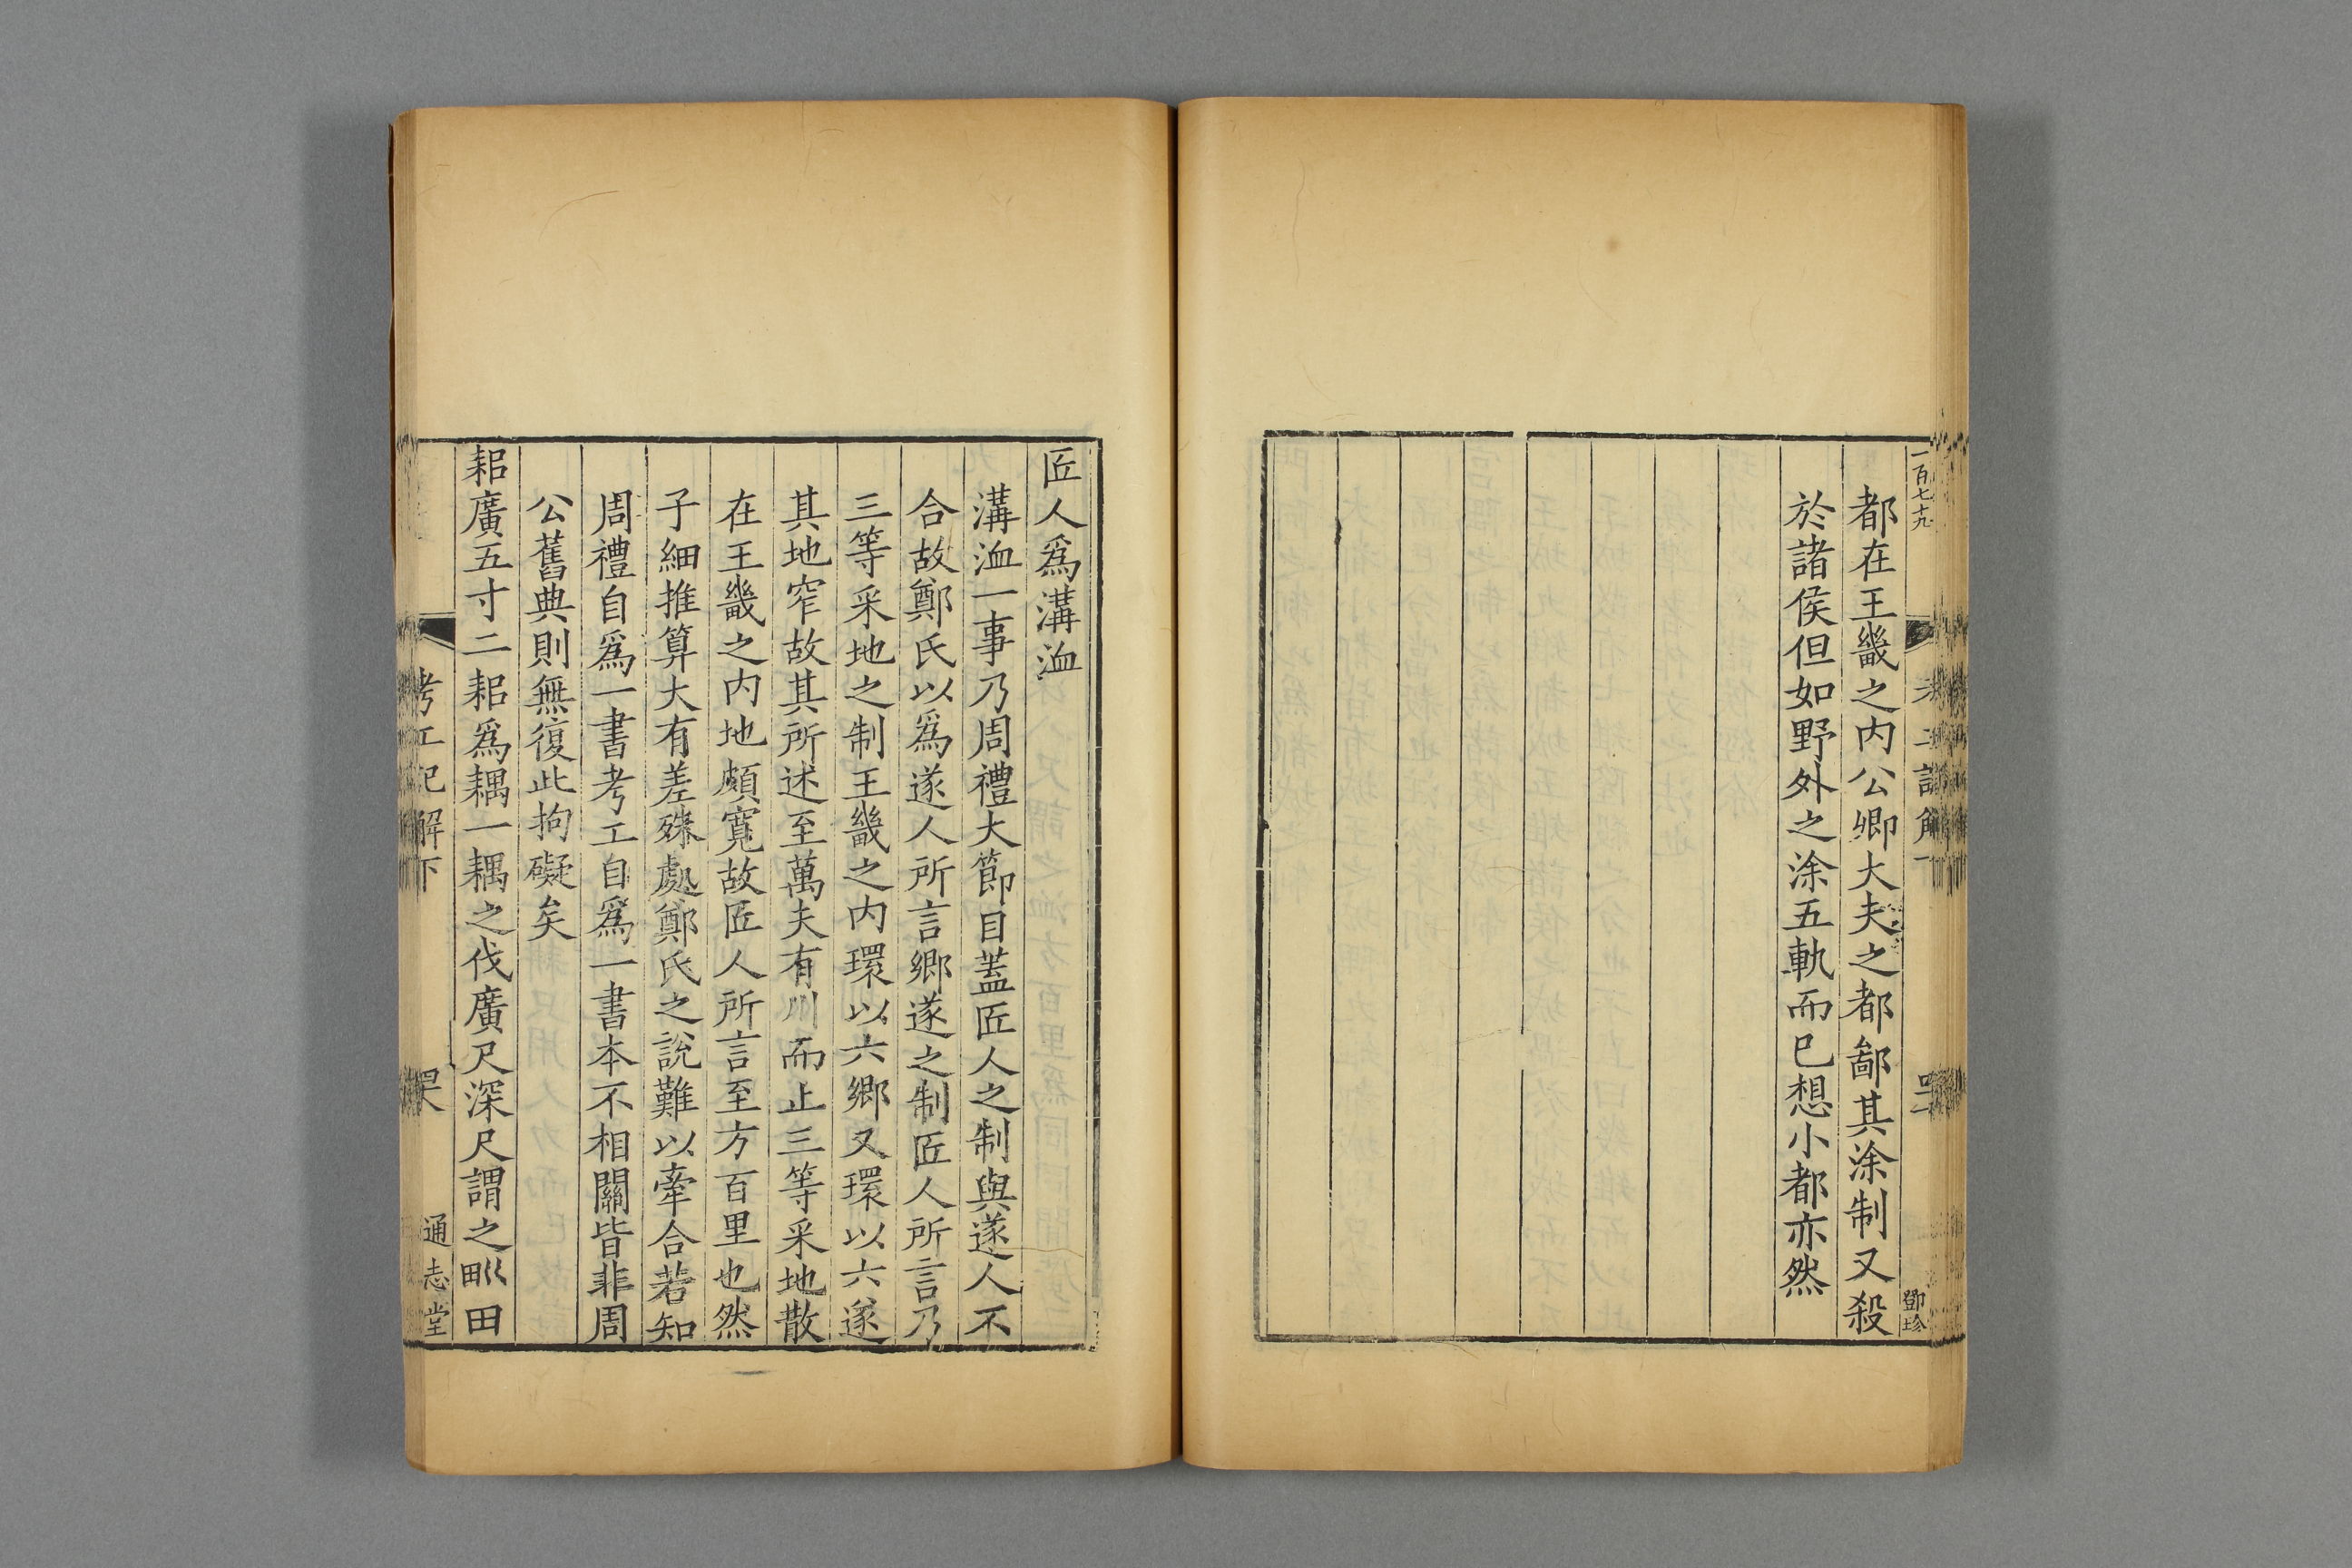 一百七十九
都在王畿之内公卿大夫之都鄙其涂制又殺
於諸侯但如野外之涂五軌而已想小都亦然
鄧珍
匠人爲溝洫
溝洫一事乃周禮大節目葢匠人之制與遂人不
合故鄭氏以爲遂人所言鄉遂之制匠人所言乃
三等采地之制王畿之内環以六鄉又環以六遂
其地窄故其所述至萬夫有川而止三等采地散
在王畿之内地頗寬故匠人所言至方百里也然
子細推算大有差殊處鄭氏之說難以牽合若知
周禮自爲一書考工自爲一書本不相關皆非周
公舊典則無復此拘礙矣
耜廣五寸二耜爲耦一耦之伐廣尺深尺謂之甽田
考工記解下
通志堂